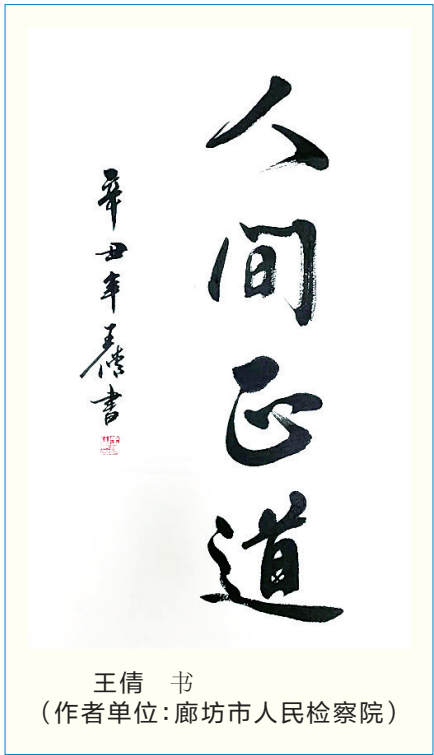 人间正道
辛丑年王倩书
王倩 书
（作者单位：廊坊市人民检察院）